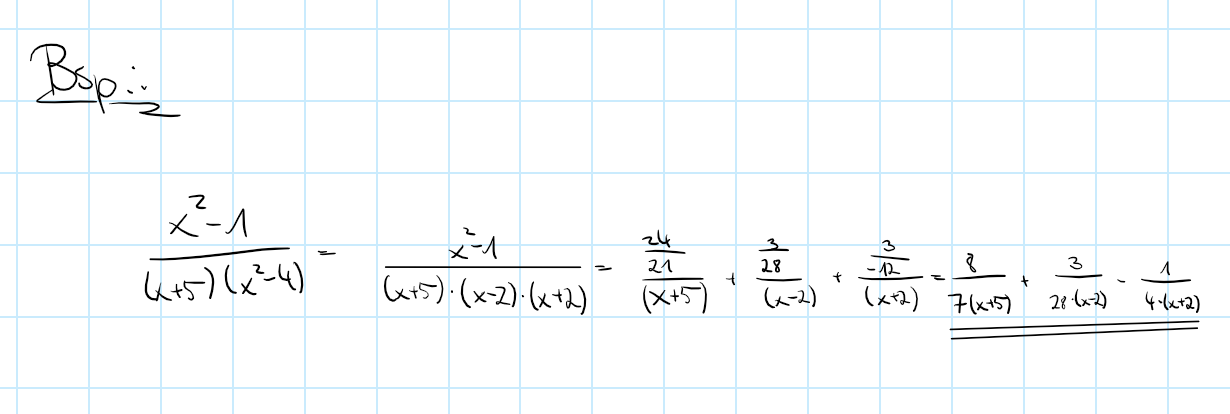 Bsp.:
\frac{x^2-1}{(x+5)(x^2-4)} = \frac{x^2-1}{(x+5)·(x-2)·(x+2)} = \frac{\frac{24}{21}}{(x+5)} + \frac{\frac{3}{28}}{(x-2)} + \frac{\frac{3}{-12}}{(x+2)} = \frac{8}{7(x+5)} + \frac{3}{28·(x-2)} - \frac{1}{4·(x+2)}